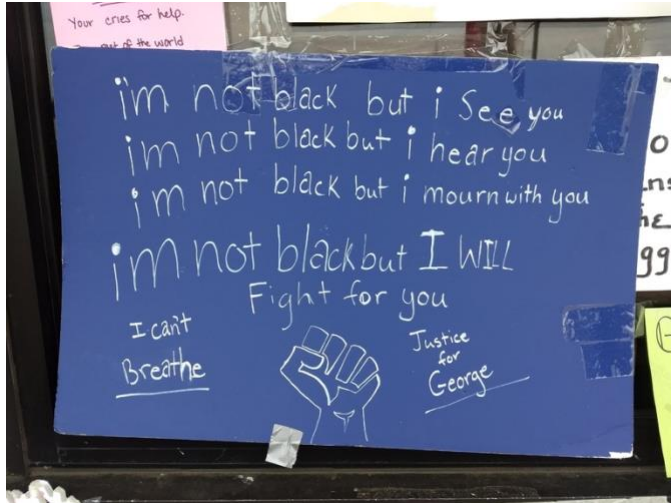 Your cries for help.
out of the world
i'm not black but i See you
im not black but i hear you
i'm not black but i mourn with you
i'm not black but I WILL
Fight for you
I can't
Breathe
Justice
for
George